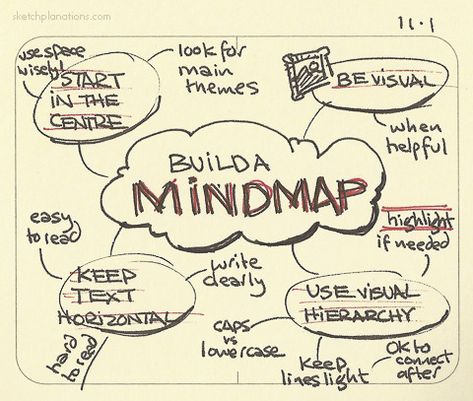 sketchplanations.com
11.1
BUILD A
MINDMAP
use space
wisely!
START
IN THE
CENTRE
look for
main
themes
BE VISUAL
when
helpful
highlight
if needed
USE VISUAL
HIERARCHY
caps
vs
lowercase
keep
lines light
OK to
connect
after
easy
to read
KEEP
TEXT
HORIZONTAL
write
clearly
hard
to read